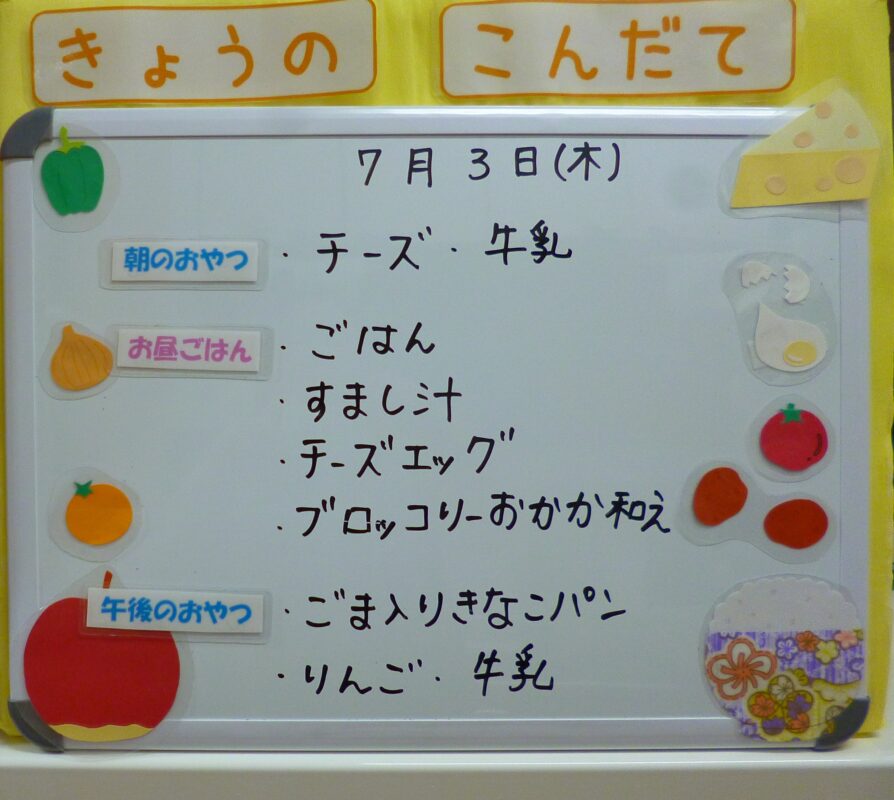 きょうの こんだて
7月3日(木)
朝のおやつ ・チーズ・牛乳
お昼ごはん ・ごはん
・すまし汁
・チーズエッグ
・ブロッコリーおかか和え
午後のおやつ ・ごま入りきなこパン
・りんご・牛乳